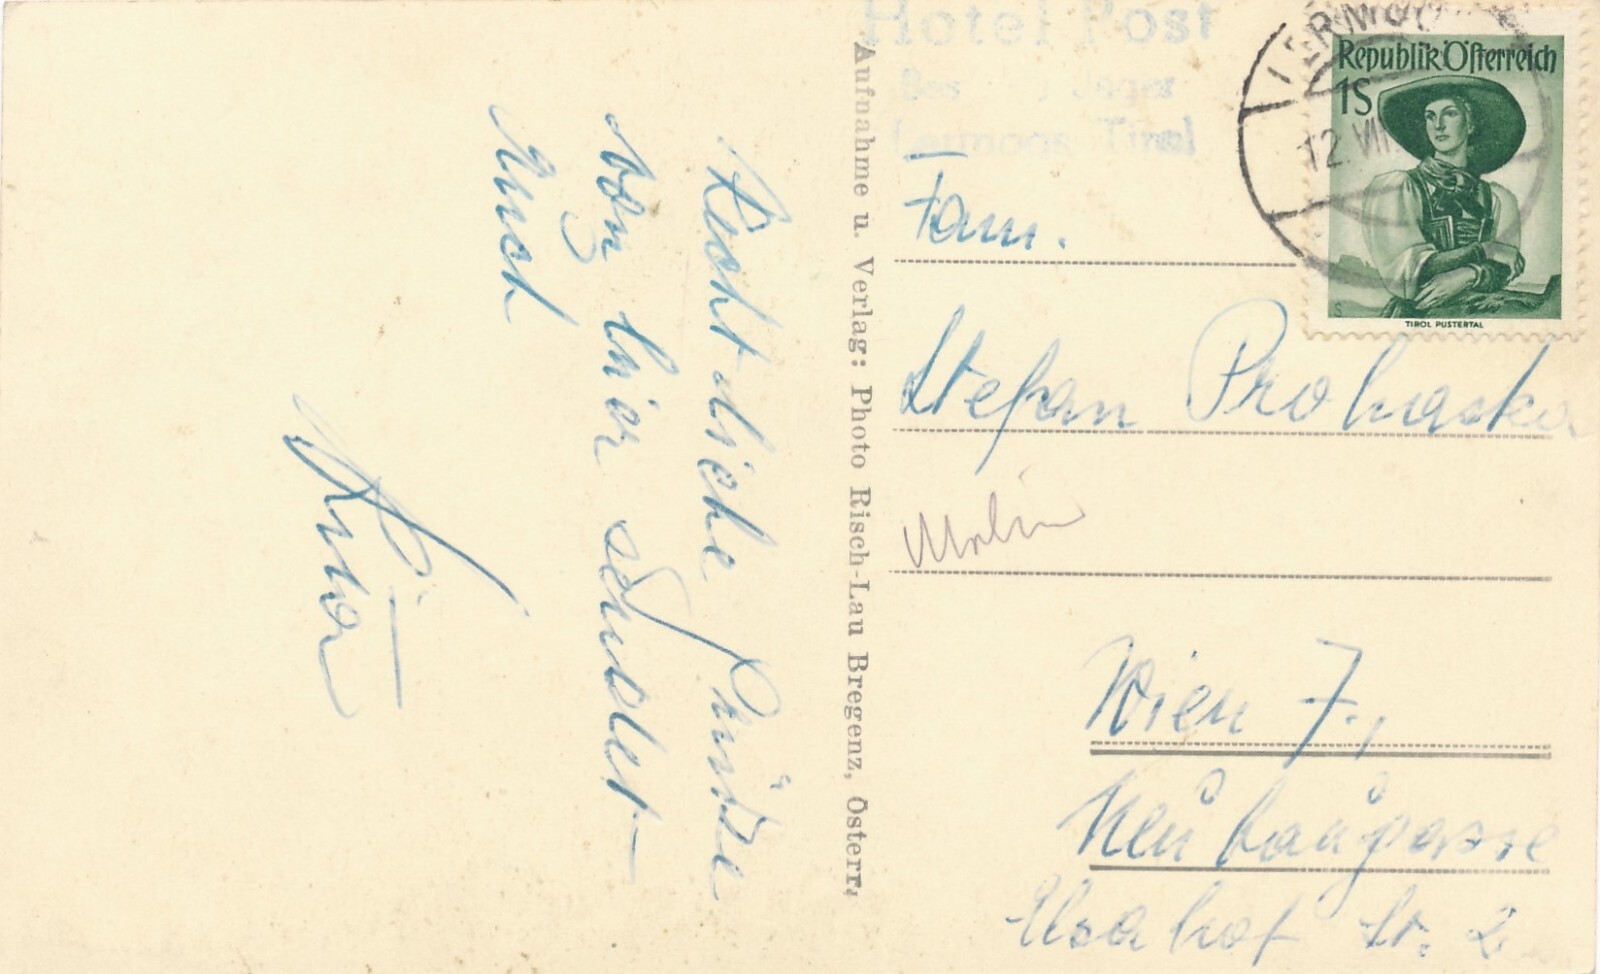 Recht liebe Grüße
von hier sendet
Euch
Aufnahme u. Verlag: Photo Risch-Lau Bregenz, Österr.
Hotel Post
Bes Jäger
Lermoos Tirol
LERMOOS
12. VII
Republik Österreich
1S
TIROL PUSTERTAL
Fam.
Stefan Prohaska
Wien 7.,
Neubaugasse
Elsahof St. 2